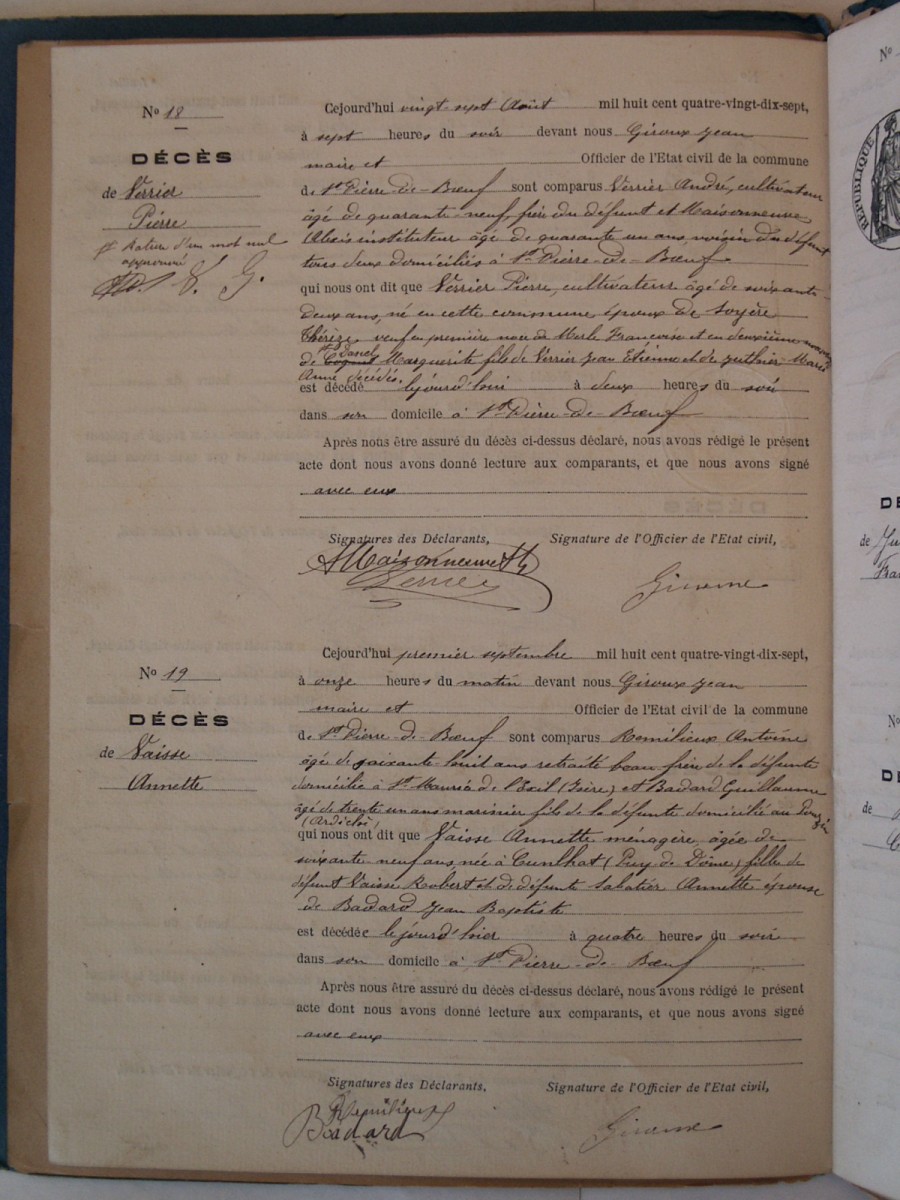 Nº 18
DÉCÈS
de Verrier
Pierre
# Rature d'un mot nul
approuvé
V. G.
Cejourd'hui vingt-sept Août mil huit cent quatre-vingt-dix-sept,
à sept heures du soir devant nous Giroux Jean
maire et Officier de l'Etat civil de la commune
de St Pierre-de-Bœuf sont comparus Verrier André, cultivateur
âgé de quarante-neuf, frère du défunt et Maisonneuve
Alexis instituteur âgé de quarante un ans, voisin du défunt
tous deux domiciliés à St Pierre-de-Bœuf
qui nous ont dit que Verrier Pierre, cultivateur âgé de soixante-
deux ans, né en cette commune époux de Soyère
Thérèze, veuf en première noce de Merle Françoise et en deuxième noces
# Danel
de Marguerite fils de Verrier Jean Etienne et de Marie
Anne décédés.
est décédé le jourd'hui à deux heures du soir
dans son domicile à St Pierre-de-Bœuf
Après nous être assuré du décès ci-dessus déclaré, nous avons rédigé le présent
acte dont nous avons donné lecture aux comparants, et que nous avons signé
avec eux
Signatures des Déclarants, Signature de l'Officier de l'Etat civil,
AMaisonneuve
Nº 19
DÉCÈS
de Vaisse
Annette
Cejourd'hui premier septembre mil huit cent quatre-vingt-dix-sept,
à onze heures du matin devant nous Giroux Jean
maire et Officier de l'Etat civil de la commune
de St Pierre-de-Bœuf sont comparus Remilieux Antoine
âgé de soixante-huit ans retraité beau frère de la défunte
domicilié à St Maurice de l'Exil (Isère) et Badard Guillaume
âgé de trente un ans marinier fils de la défunte domicilié au Pouzin
(Ardèche)
qui nous ont dit que Vaisse Annette ménagère, âgée de
soixante-neuf ans née à Cunlhat (Puy de Dôme) fille de
défunt Vaisse Robert et de défunte Sabatier Annette épouse
de Badard Jean Baptiste
est décédée le jourd'hier à quatre heures du soir
dans son domicile à St Pierre-de-Bœuf
Après nous être assuré du décès ci-dessus déclaré, nous avons rédigé le présent
acte dont nous avons donné lecture aux comparants, et que nous avons signé
avec eux
Signatures des Déclarants, Signature de l'Officier de l'Etat civil,
Remilieux
Badard
Nº
RÉPUBLIQUE
de
Fra
Nº
de